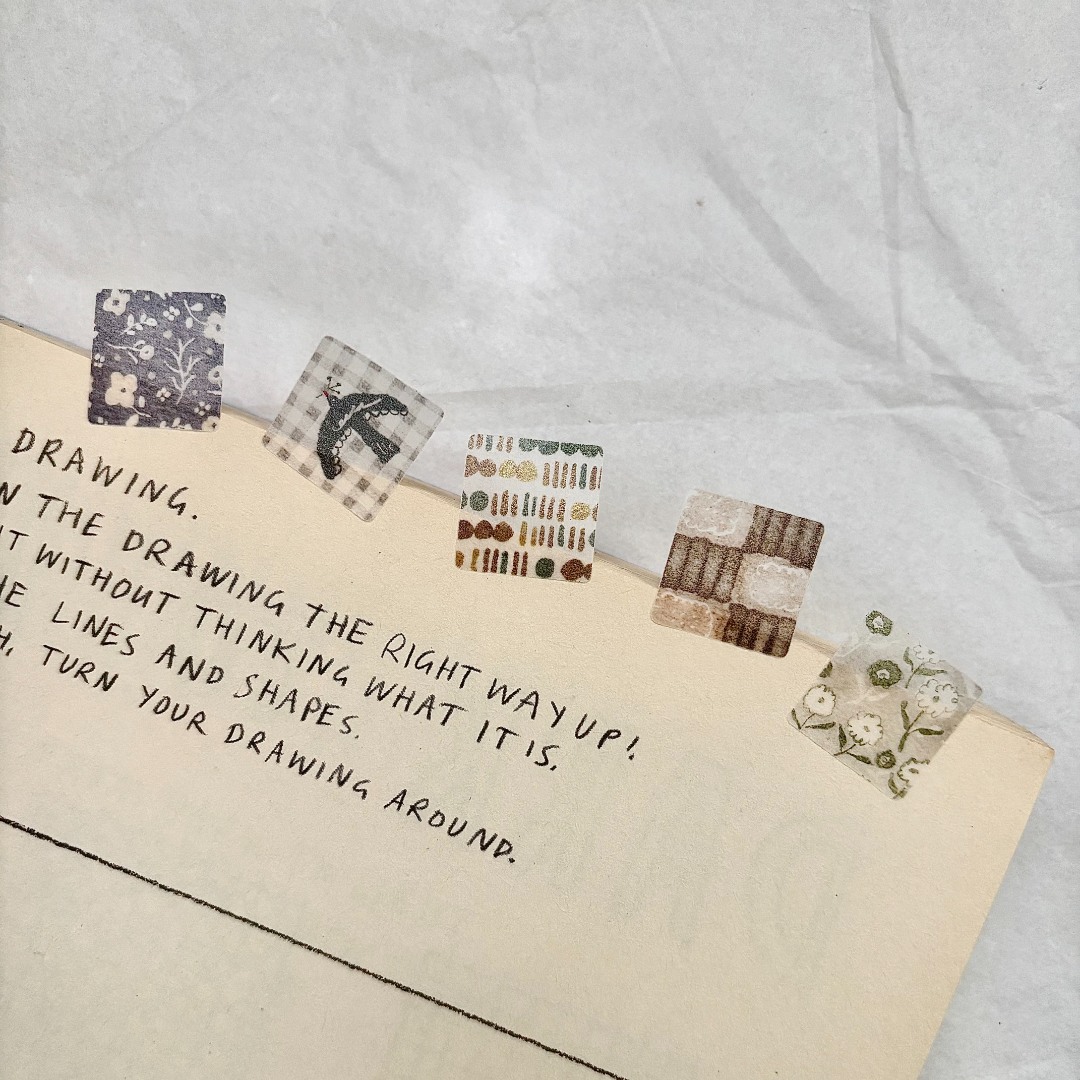 DRAWING.
N THE DRAWING THE RIGHT WAY UP!
IT WITHOUT THINKING WHAT IT IS.
HE LINES AND SHAPES.
H, TURN YOUR DRAWING AROUND.